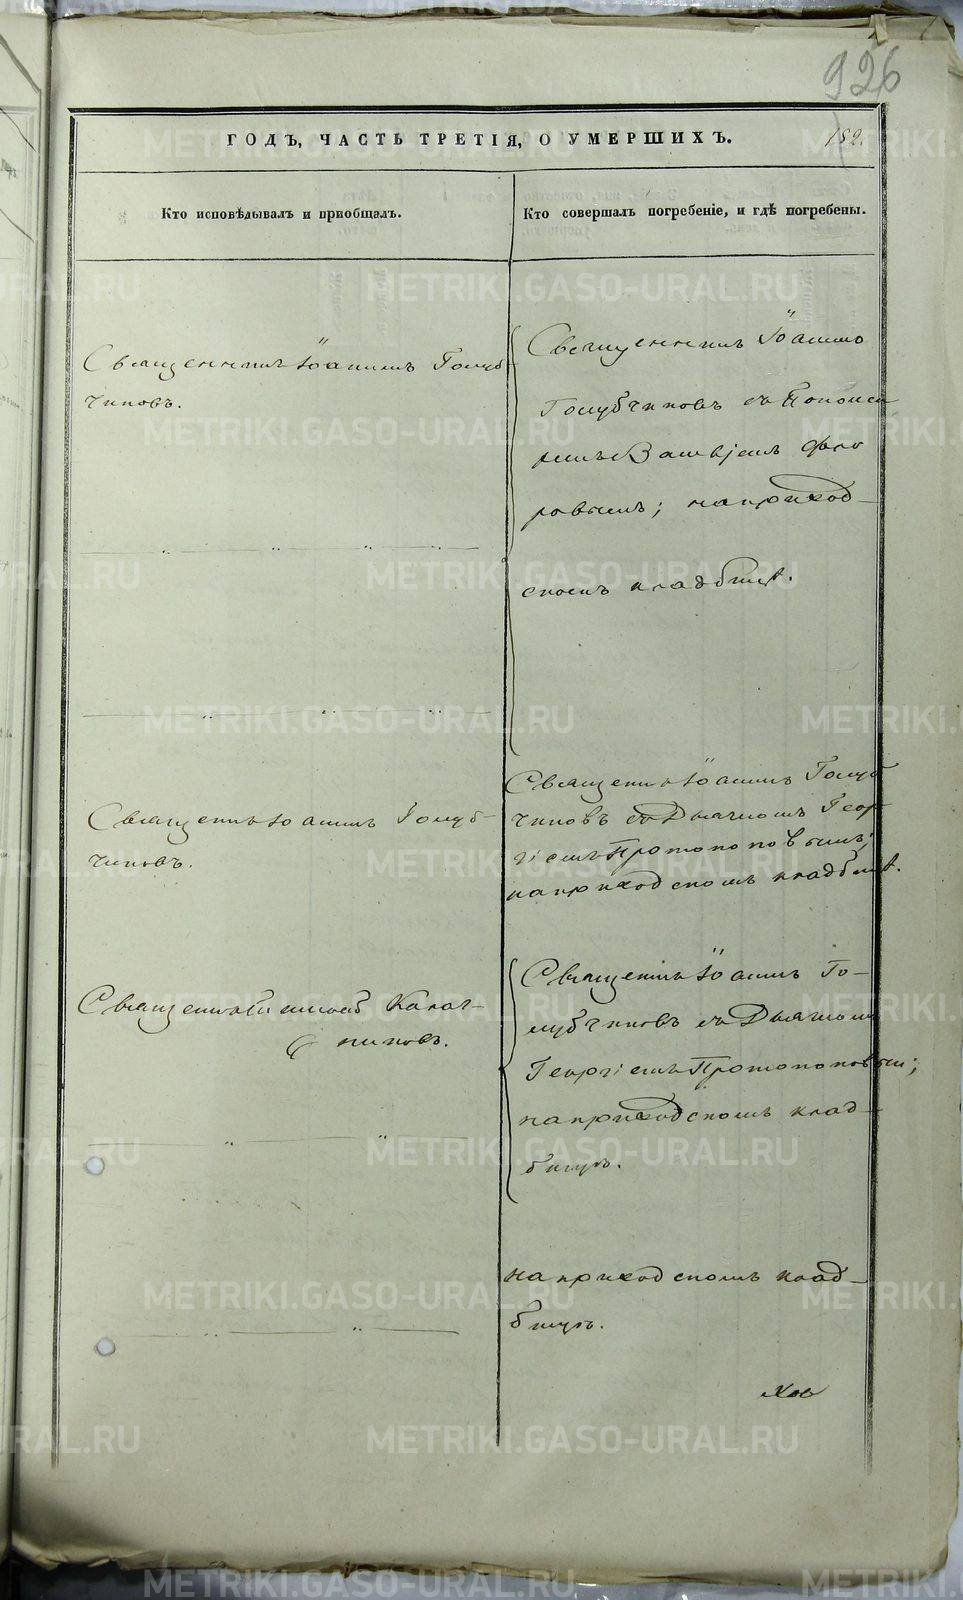 926
ГОДЪ, ЧАСТЬ ТРЕТІЯ, О УМЕРШИХЪ.
152.
Кто исповѣдывалъ и приобщалъ.
Кто совершалъ погребеніе, и гдѣ погребены.
Священникъ Іоаннъ Голуб-
чиковъ.
Священникъ Іоаннъ Голубчиковъ
Священникъ Іоаннъ
Голубчиковъ съ Понома
ремъ
ровымъ; на приход-
скомъ кладбищѣ.
Священникъ Іоаннъ Голуб-
чиковъ.
Священникъ Іоаннъ Голуб
чиковъ съ Дьячкомъ Геор-
гіемъ Протопоповымъ;
на приходскомъ кладбищѣ.
Священникъ Калач-
никовъ.
Священникъ Іоаннъ Го-
лубчиковъ съ Дьячкомъ
Георгіемъ Протопоповым;
на приходскомъ клад-
бищѣ.
на приходскомъ клад-
бищѣ.
METRIKI.GASO-URAL.RU